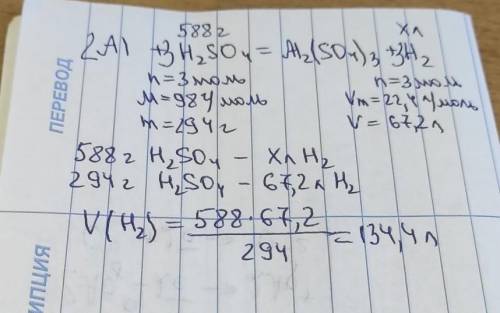 588 г Xл
2Al + 3H₂SO₄ = Al₂(SO₄)₃ + 3H₂
n = 3 моль n = 3 моль
M = 98 г/моль Vm = 22,4 л/моль
m = 294 г V = 67,2 л
588 г H₂SO₄ – Xл H₂
294 г H₂SO₄ – 67,2 л H₂
V(H₂) = 588·67,2 / 294 = 134,4 л
ПЕРЕВОД
ИПЦИЯ